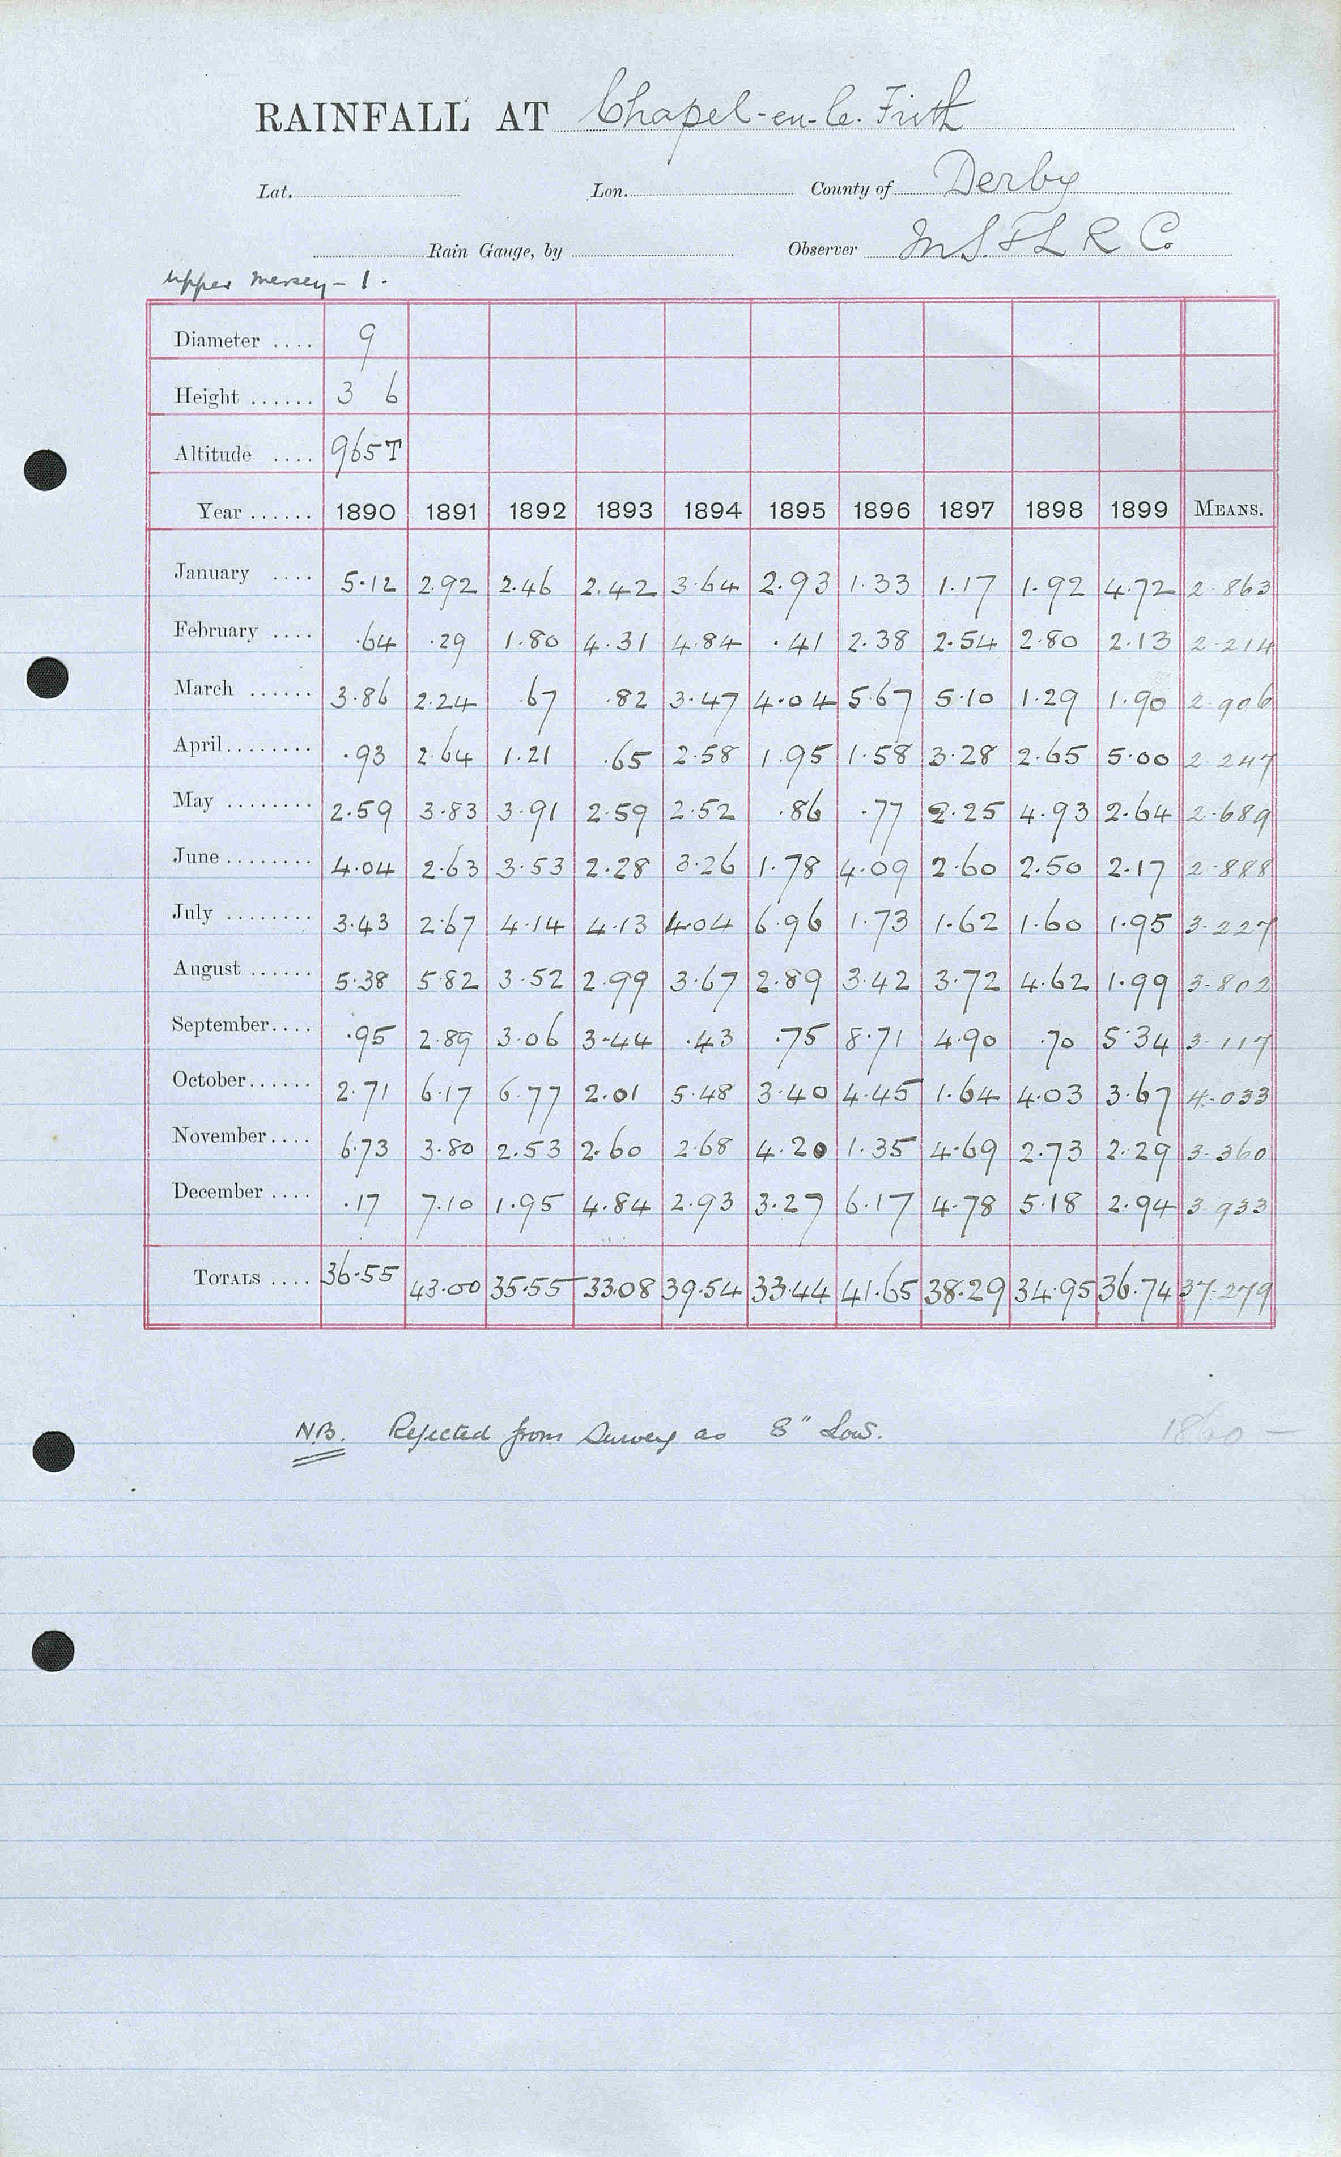 RAINFALL AT Chapel-en-le-Frith
Lat. Lon. County of Derby
Rain Gauge, by Observer M S. & L R Co
Upper Mersey - 1.
Diameter .... 9
Height ...... 3 6
Altitude .... 965T
Year ...... 1890 1891 1892 1893 1894 1895 1896 1897 1898 1899 MEANS.
January .... 5.12 2.92 2.46 2.42 3.64 2.93 1.33 1.17 1.92 4.72 2.863
February .... .64 .29 1.80 4.31 4.84 .41 2.38 2.54 2.80 2.13 2.214
March ...... 3.86 2.24 .67 .82 3.47 4.04 5.67 5.10 1.29 1.90 2.906
April........ .93 2.64 1.21 .65 2.58 1.95 1.58 3.28 2.65 5.00 2.247
May ........ 2.59 3.83 3.91 2.59 2.52 .86 .77 2.25 4.93 2.64 2.689
June........ 4.04 2.63 3.53 2.28 3.26 1.78 4.09 2.60 2.50 2.17 2.888
July ........ 3.43 2.67 4.14 4.13 4.04 6.96 1.73 1.62 1.60 1.95 3.227
August ...... 5.38 5.82 3.52 2.99 3.67 2.89 3.42 3.72 4.62 1.99 3.802
September.... .95 2.89 3.06 3.44 .43 .75 8.71 4.90 .70 5.34 3.117
October...... 2.71 6.17 6.77 2.01 5.48 3.40 4.45 1.64 4.03 3.67 4.033
November.... 6.73 3.80 2.53 2.60 2.68 4.20 1.35 4.69 2.73 2.29 3.360
December .... .17 7.10 1.95 4.84 2.93 3.27 6.17 4.78 5.18 2.94 3.933
TOTALS .... 36.55 43.00 35.55 33.08 39.54 33.44 41.65 38.29 34.95 36.74 37.279
NB. Rejected from Survey as 8" Low.
1860 —